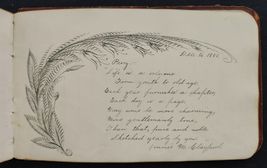 Perry.
Life is a volume
From youth to old age,
Each year furnishes a chapter,
Each day is a page.
May none be more charming,
More gentlemanly tone,
Than that, pure and noble
Sketched yearly by you